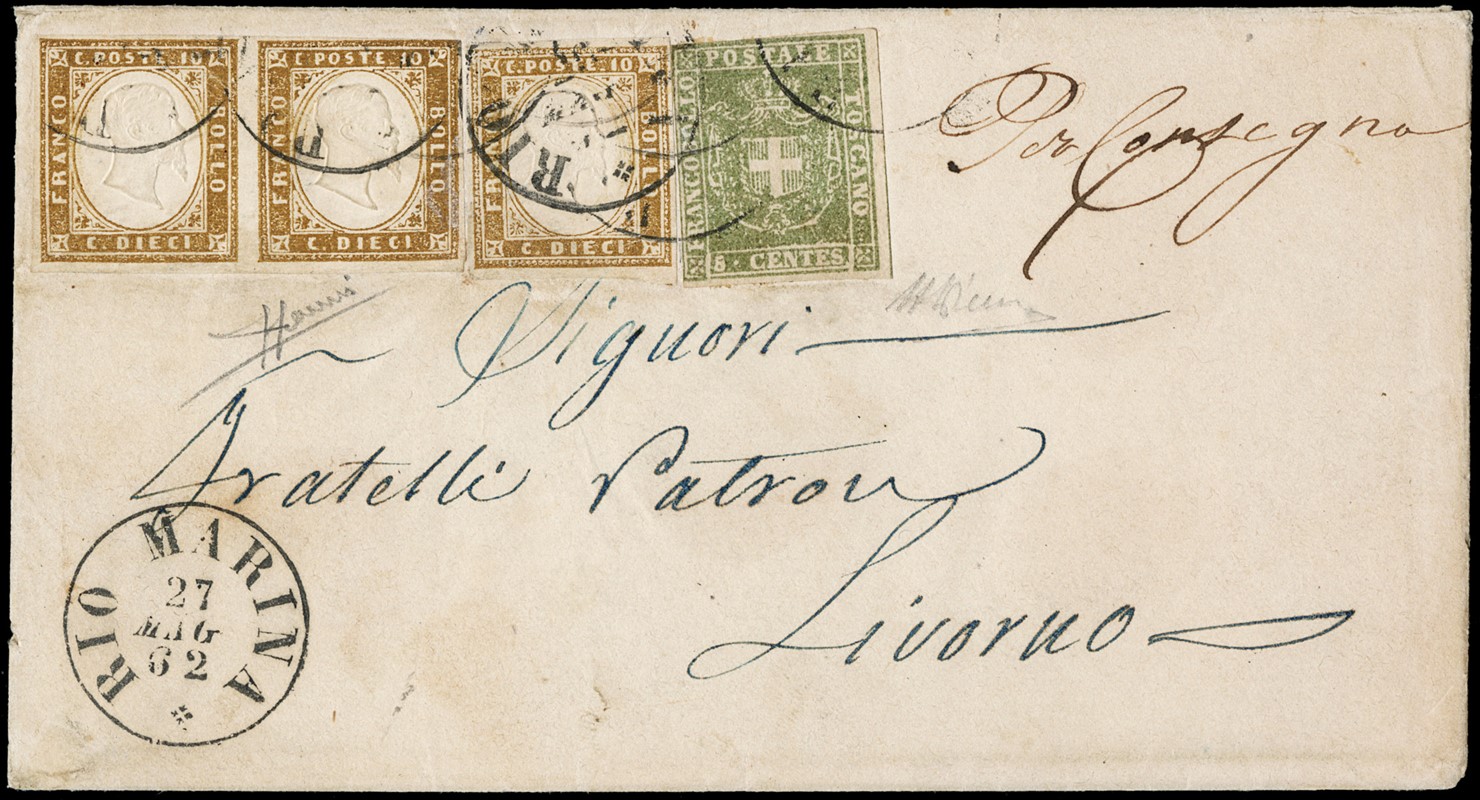 C. POSTE 10
FRANCO
BOLLO
C. DIECI
C. POSTE 10
FRANCO
BOLLO
C. DIECI
C. POSTE 10
FRANCO
BOLLO
C. DIECI
POSTALE
FRANCOBOLLO
TOSCANO
5. CENTES
RIO
Per Consegna
Signori
Fratelli Patron
Livorno
RIO MARINA
27
MAG
62